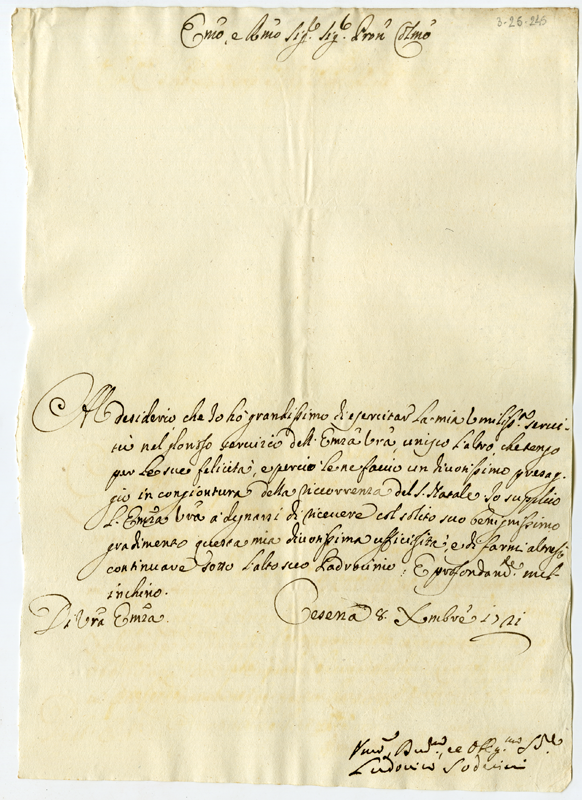 3-26-245
Emo, e Rmo Sigr. Sigr. Pron Colmo
Al desiderio che Io hò grandissimo di esercitar la mia Umiliss: servi-
tù nel glorioso servizio dell' Emza Vra unisco l'altro, che tengo
per le sue felicità, e perciò le ne faccio un divotissimo presag-
gio in congiontura della ricorrenza del S. Natale. Io supplico
L' Emza Vra a degnarsi di ricevere col solito suo benignissimo
gradimento questa mia divotissima, e di farmi altresì
continuare sotto l'alto suo Padrocinio; E profondamte. mel'
inchino.
Di Vra Emza.
Cesena 8. Xmbre 1721
Umo, Divmo, ed Obbgmo
Ludovico